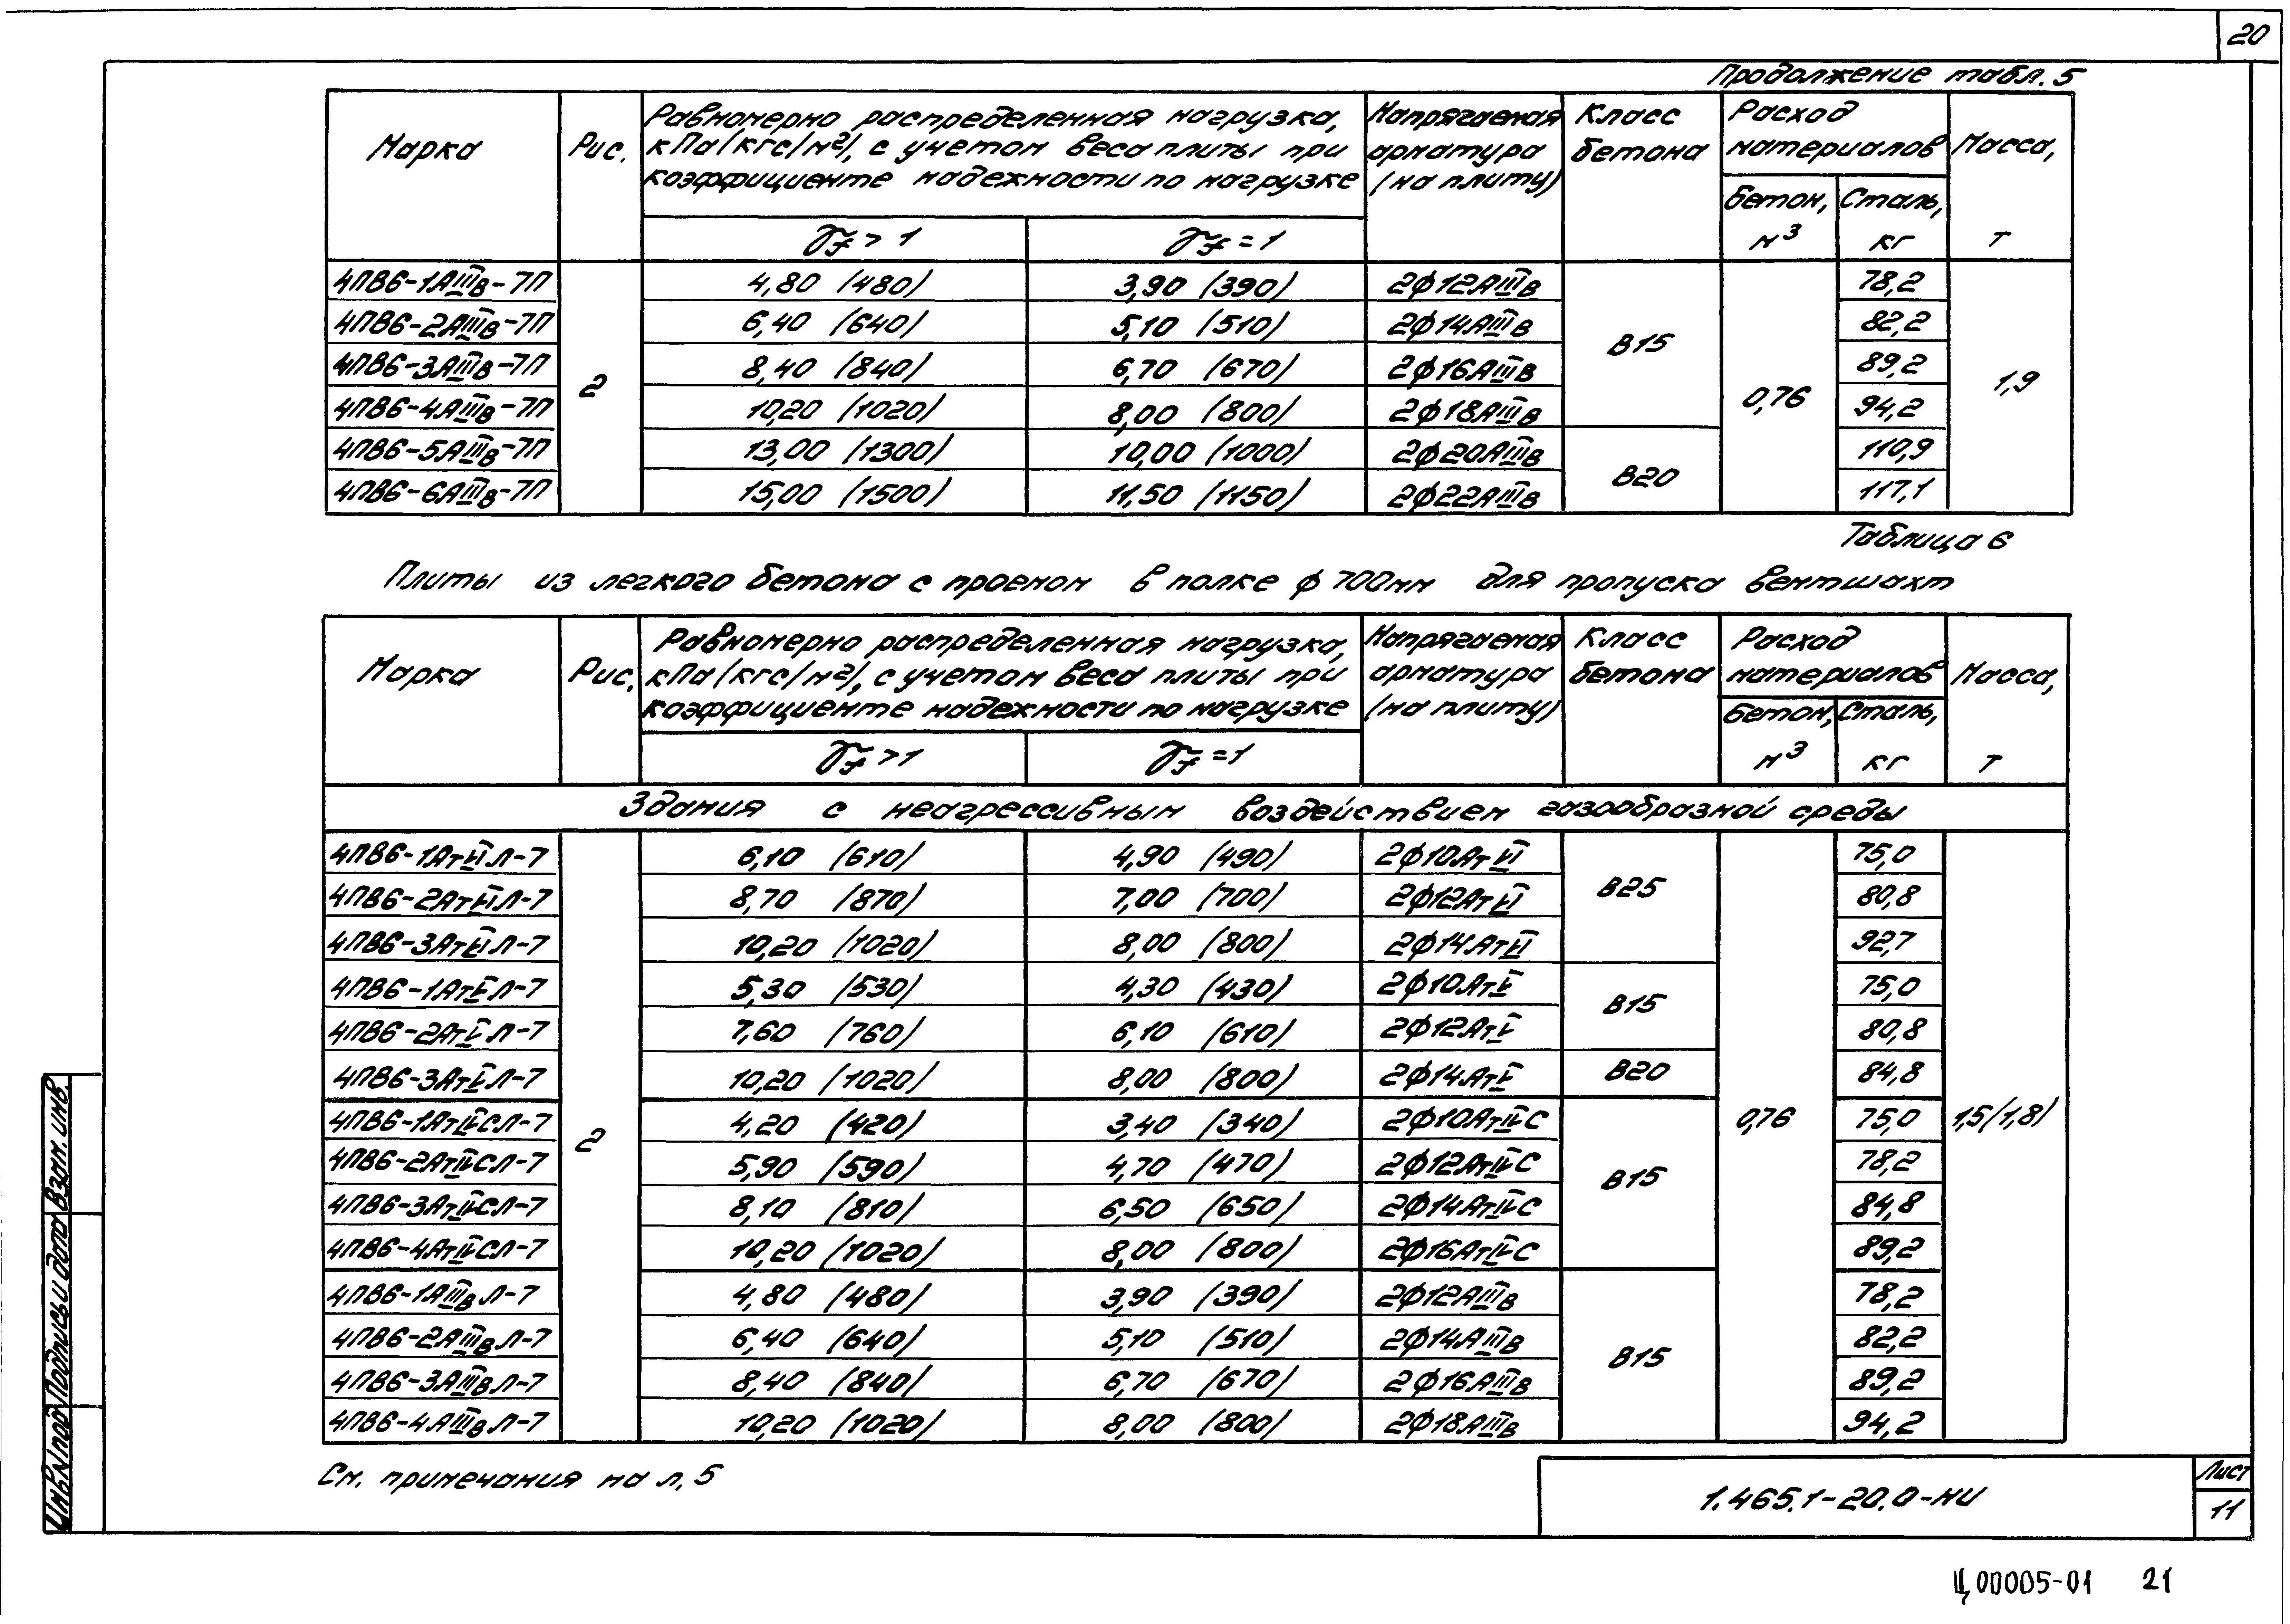 20
Продолжение табл. 5
Марка | Рис. | Равномерно распределенная нагрузка, кПа (кгс/м²), с учетом веса плиты при коэффициенте надежности по нагрузке | Напрягаемая арматура (на плиту) | Класс бетона | Расход материалов | Масса, т
γf > 1 | γf = 1 | Бетон, м³ | Сталь, кг
4ПВ6-1АIIIв-7П | 2 | 4,80 (480) | 3,90 (390) | 2ф12АIIIв | В15 | 0,76 | 78,2 | 1,9
4ПВ6-2АIIIв-7П | 6,40 (640) | 5,10 (510) | 2ф14АIIIв | 82,2
4ПВ6-3АIIIв-7П | 8,40 (840) | 6,70 (670) | 2ф16АIIIв | 89,2
4ПВ6-4АIIIв-7П | 10,20 (1020) | 8,00 (800) | 2ф18АIIIв | 94,2
4ПВ6-5АIIIв-7П | 13,00 (1300) | 10,00 (1000) | 2ф20АIIIв | В20 | 110,9
4ПВ6-6АIIIв-7П | 15,00 (1500) | 11,50 (1150) | 2ф22АIIIв | 117,1
Таблица 6
Плиты из легкого бетона с проемом в полке ф 700мм для пропуска вентшахт
Марка | Рис. | Равномерно распределенная нагрузка, кПа (кгс/м²), с учетом веса плиты при коэффициенте надежности по нагрузке | Напрягаемая арматура (на плиту) | Класс бетона | Расход материалов | Масса, т
γf > 1 | γf = 1 | Бетон, м³ | Сталь, кг
Здания с неагрессивным воздействием газообразной среды
4ПВ6-1АтVIЛ-7 | 2 | 6,10 (610) | 4,90 (490) | 2ф10АтVI | В25 | 0,76 | 75,0 | 1,5 (1,8)
4ПВ6-2АтVIЛ-7 | 8,70 (870) | 7,00 (700) | 2ф12АтVI | 80,8
4ПВ6-3АтVIЛ-7 | 10,20 (1020) | 8,00 (800) | 2ф14АтVI | 92,7
4ПВ6-1АтVЛ-7 | 5,30 (530) | 4,30 (430) | 2ф10АтV | В15 | 75,0
4ПВ6-2АтVЛ-7 | 7,60 (760) | 6,10 (610) | 2ф12АтV | 80,8
4ПВ6-3АтVЛ-7 | 10,20 (1020) | 8,00 (800) | 2ф14АтV | В20 | 84,8
4ПВ6-1АтIVСЛ-7 | 4,20 (420) | 3,40 (340) | 2ф10АтIVС | В15 | 75,0
4ПВ6-2АтIVСЛ-7 | 5,90 (590) | 4,70 (470) | 2ф12АтIVС | 78,2
4ПВ6-3АтIVСЛ-7 | 8,10 (810) | 6,50 (650) | 2ф14АтIVС | 84,8
4ПВ6-4АтIVСЛ-7 | 10,20 (1020) | 8,00 (800) | 2ф16АтIVС | 89,2
4ПВ6-1АIIIвЛ-7 | 4,80 (480) | 3,90 (390) | 2ф12АIIIв | В15 | 78,2
4ПВ6-2АIIIвЛ-7 | 6,40 (640) | 5,10 (510) | 2ф14АIIIв | 82,2
4ПВ6-3АIIIвЛ-7 | 8,40 (840) | 6,70 (670) | 2ф16АIIIв | 89,2
4ПВ6-4АIIIвЛ-7 | 10,20 (1020) | 8,00 (800) | 2ф18АIIIв | 94,2
См. примечания на л. 5
1.465.1-20.0-НИ
Лист
11
Инв№под Подпись и дата Взам. инв.
Ц00005-01 21